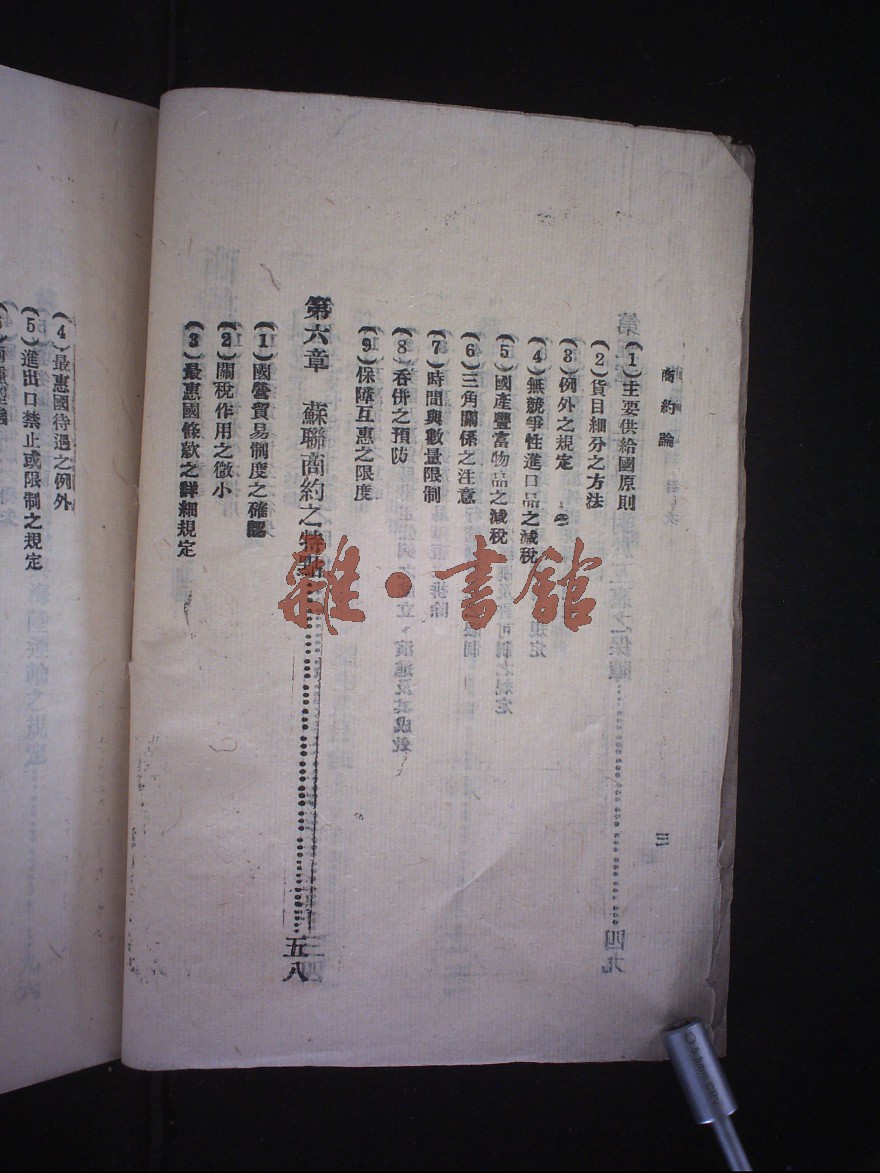 商約論
三
(1)主要供給國原則
(2)貨目細分之方法
(3)例外之規定
(4)無競爭性進口品之減稅
(5)國產豐富物品之減稅
(6)三角關係之注意
(7)時間與數量限制
(8)吞併之預防
(9)保障互惠之限度
第六章 蘇聯商約之特點……………………五八
(1)國營貿易制度之確認
(2)關稅作用之微小
(3)最惠國條款之詳細規定
(4)最惠國待遇之例外
(5)進出口禁止或限制之規定
雜·書館